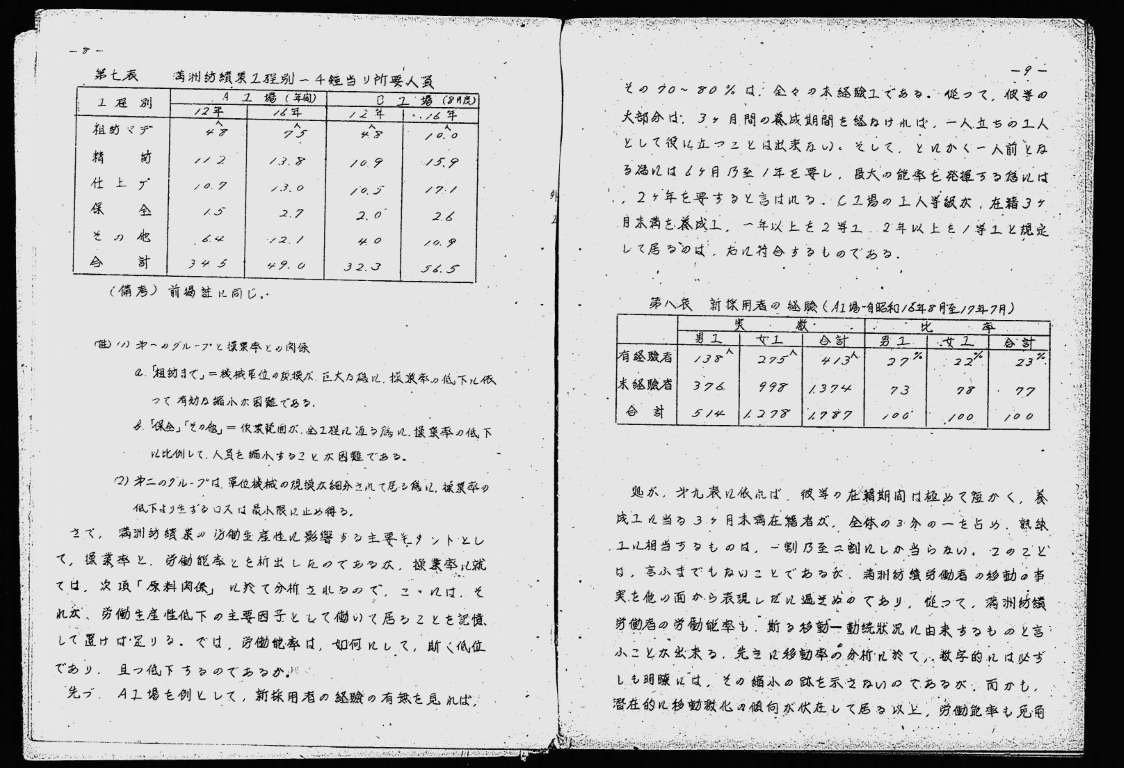 －8－
第七表　満洲紡績業工程別一千錘当り所要人員
工程別　A工場（年間）　C工場（8月度）
12年　16年　12年　16年
粗紡マデ　4.8人　7.5人　4.8人　10.0人
精紡　11.2　13.8　10.9　15.9
仕上ゲ　10.7　13.0　10.5　17.1
保全　1.5　2.7　2.0　2.6
その他　6.4　12.1　4.0　10.9
合計　34.5　49.0　32.3　56.5
（備考）前掲註に同じ。
(註)(1) 第一のグループと操業率との関係
a.「粗紡まで」＝機械単位の規模が巨大な為に、操業率の低下に依
って有効な縮小が困難である。
b.「保全」「その他」＝作業範囲が、全工程に迫る為に、操業率の低下
に比例して、人員を縮小することが困難である。
(2) 第二のグループは、単位機械の規模が細分されて居る為に、操業率の
低下より生ずるロスは最小限に止め得る。
さて、満洲紡績業の労働生産性に影響する主要モメントとし
て、操業率と、労働能率とを析出したのであるが、操業率に就
ては、次項「原料関係」に於て分析されるので、こゝには、そ
れが、労働生産性低下の主要因子として働いて居ることを記憶
して置けば足りる。では、労働能率は、如何にして、斯く低位
であり、且つ低下するのであるか。
先づ、A工場を例として、新採用者の経験の有無を見れば、
－9－
その70～80％は、全々の未経験工である。従って、彼等の
大部分は、3ヶ月間の養成期間を経なければ、一人立ちの工人
として役に立つことは出来ない。そして、とにかく一人前とな
る為には6ヶ月乃至1年を要し、最大の能率を発揮する為には
、2ヶ年を要すると言はれる。C工場の工人等級が、在籍3ヶ
月未満を養成工、一年以上を2等工、2年以上を1等工と規定
して居るのは、右に符合するものである。
第八表　新採用者の経験（A工場・自昭和16年8月至17年7月）
実数　比率
男工　女工　合計　男工　女工　合計
有経験者　138人　275人　413人　27％　22％　23％
未経験者　376　998　1,374　73　78　77
合計　514　1,278　1,787　100　100　100
処が、第九表に依れば、彼等の在籍期間は極めて短かく、養
成工に当る3ヶ月未満在籍者が、全体の3分の一を占め、熟練
工に相当するものは、一割乃至二割にしか当らない。このこと
は、言ふまでもないことであるが、満洲紡績労働者の移動の事
実を他の面から表現したに過ぎぬのであり、従って、満洲紡績
労働者の労働能率も、斯る移動―勤続状況に由来するものと言
ふことが出来る。先きに移動率の分析に於て、数字的には必ず
しも明瞭には、その縮小の跡を示さないのであるが、而かも、
潜在的に移動激化の傾向が伏在して居る以上、労働能率も見用